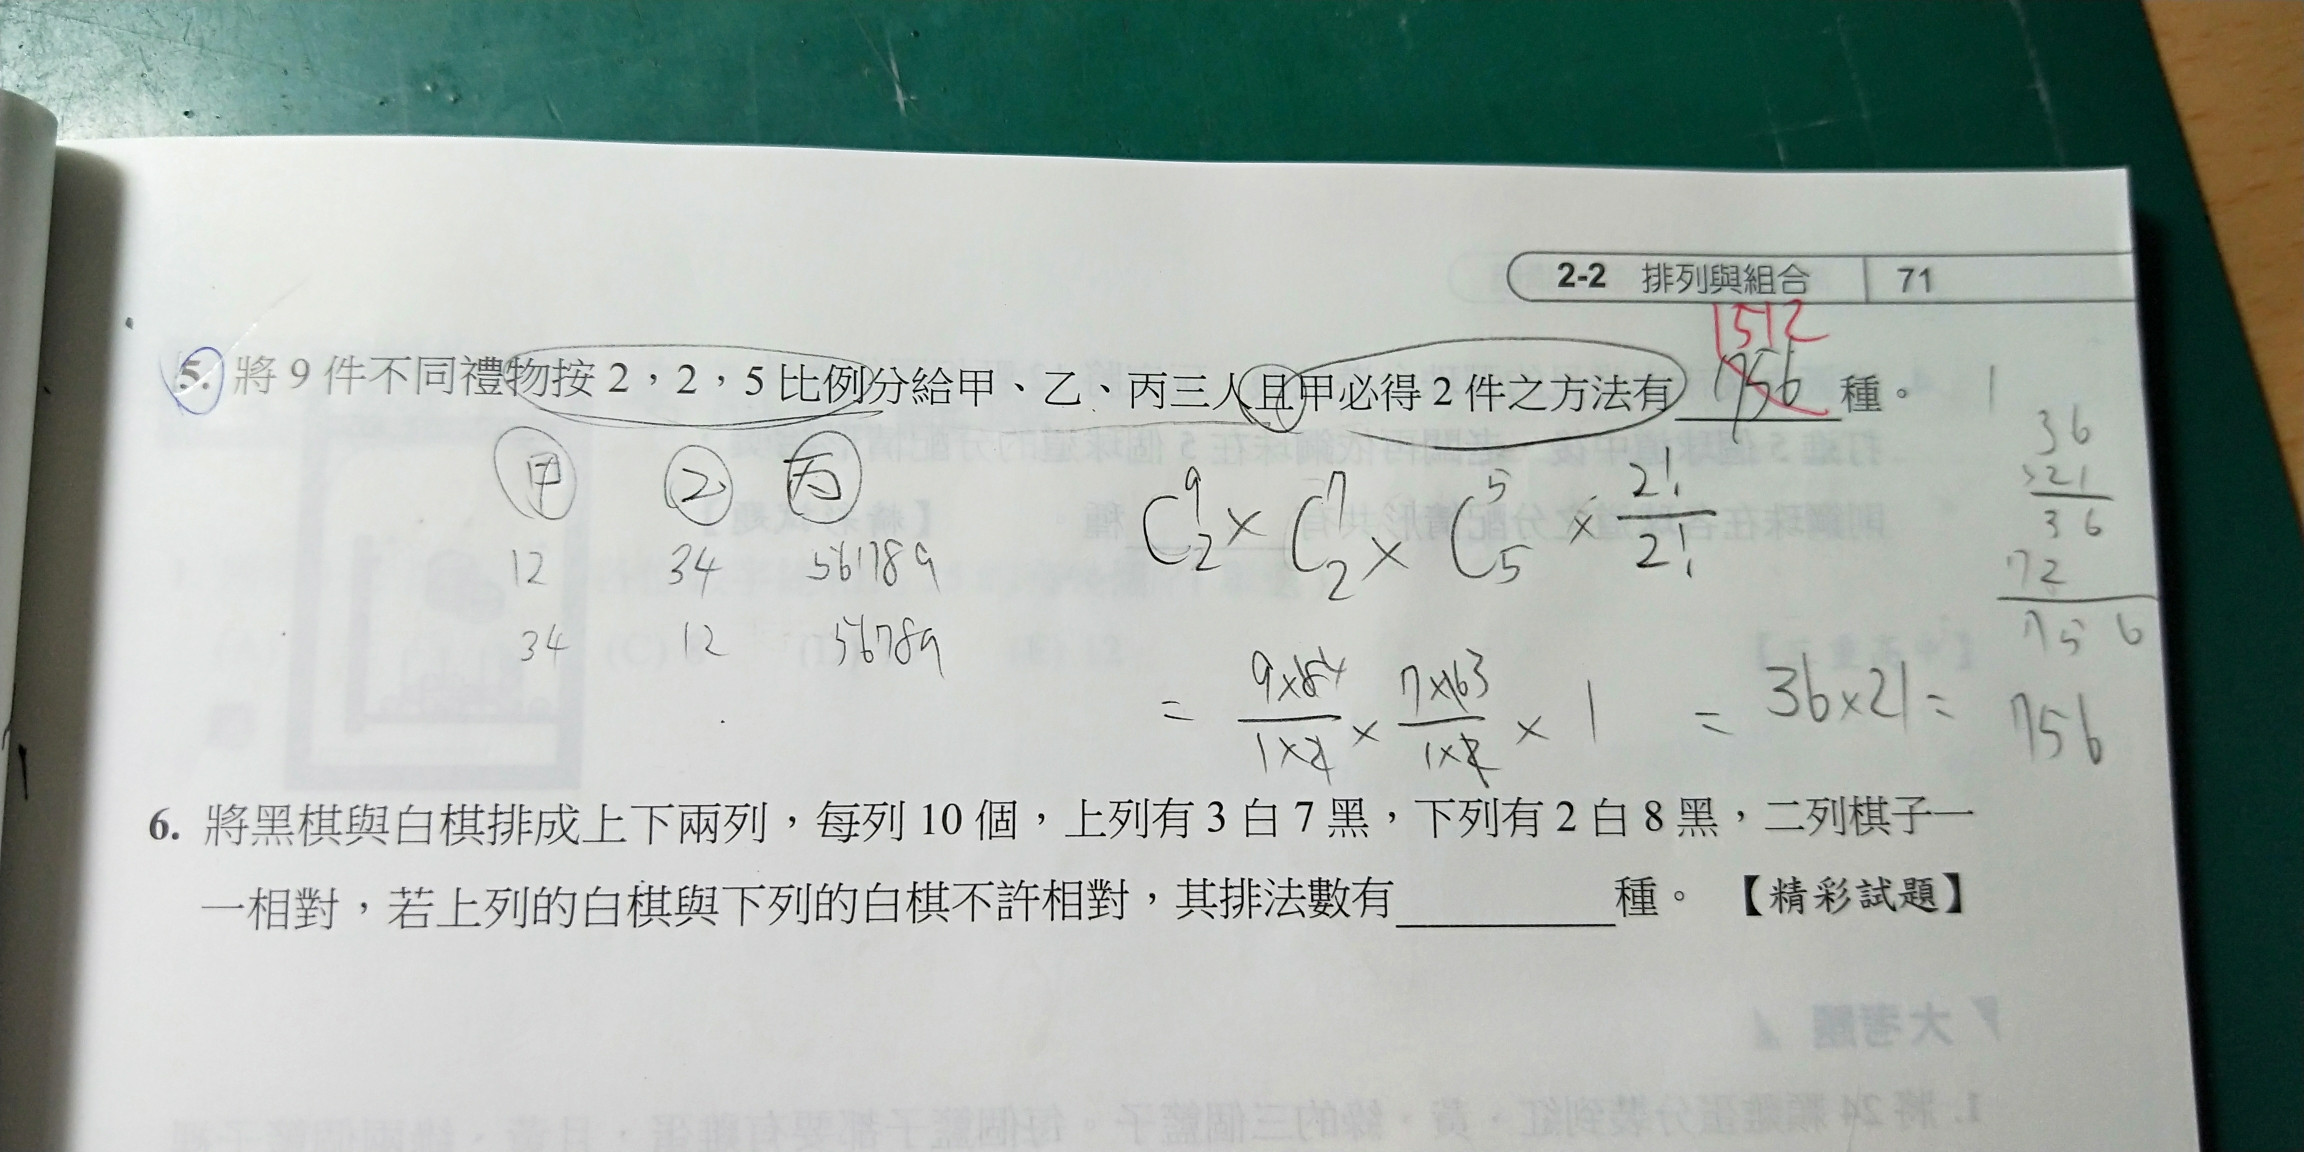 2-2 排列與組合 71
1512
5. 將 9 件不同禮物按 2，2，5 比例分給甲、乙、丙三人且甲必得 2 件之方法有 756 種。
甲 乙 丙
12 34 56789
34 12 56789
C⁹₂ × C⁷₂ × C⁵₅ × 2!/2!
= 9×8 4/1×2 × 7×6 3/1×2 × 1 = 36×21 = 756
36
×21
36
72
756
6. 將黑棋與白棋排成上下兩列，每列 10 個，上列有 3 白 7 黑，下列有 2 白 8 黑，二列棋子一
一相對，若上列的白棋與下列的白棋不許相對，其排法數有 種。 【精彩試題】